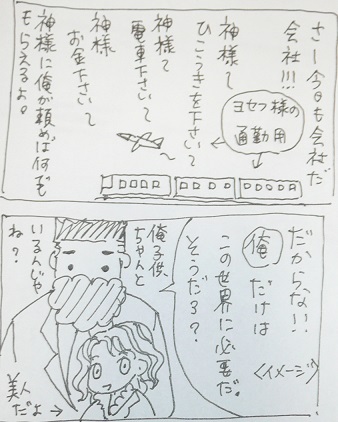 さー今日も会社だ
会社!!!
神様〜
ひこうきを下さい〜
神様〜
電車下さい〜
神様
お金下さい〜
神様に俺が頼めば何でも
もらえるよ。
ヨセフ様の
通勤用
だからない!!
俺だけは
この世界に必要だ。
そうだろ?
<イメージ>
俺子供
ちゃんと
いるんじゃ
ね?
美人
だよ→